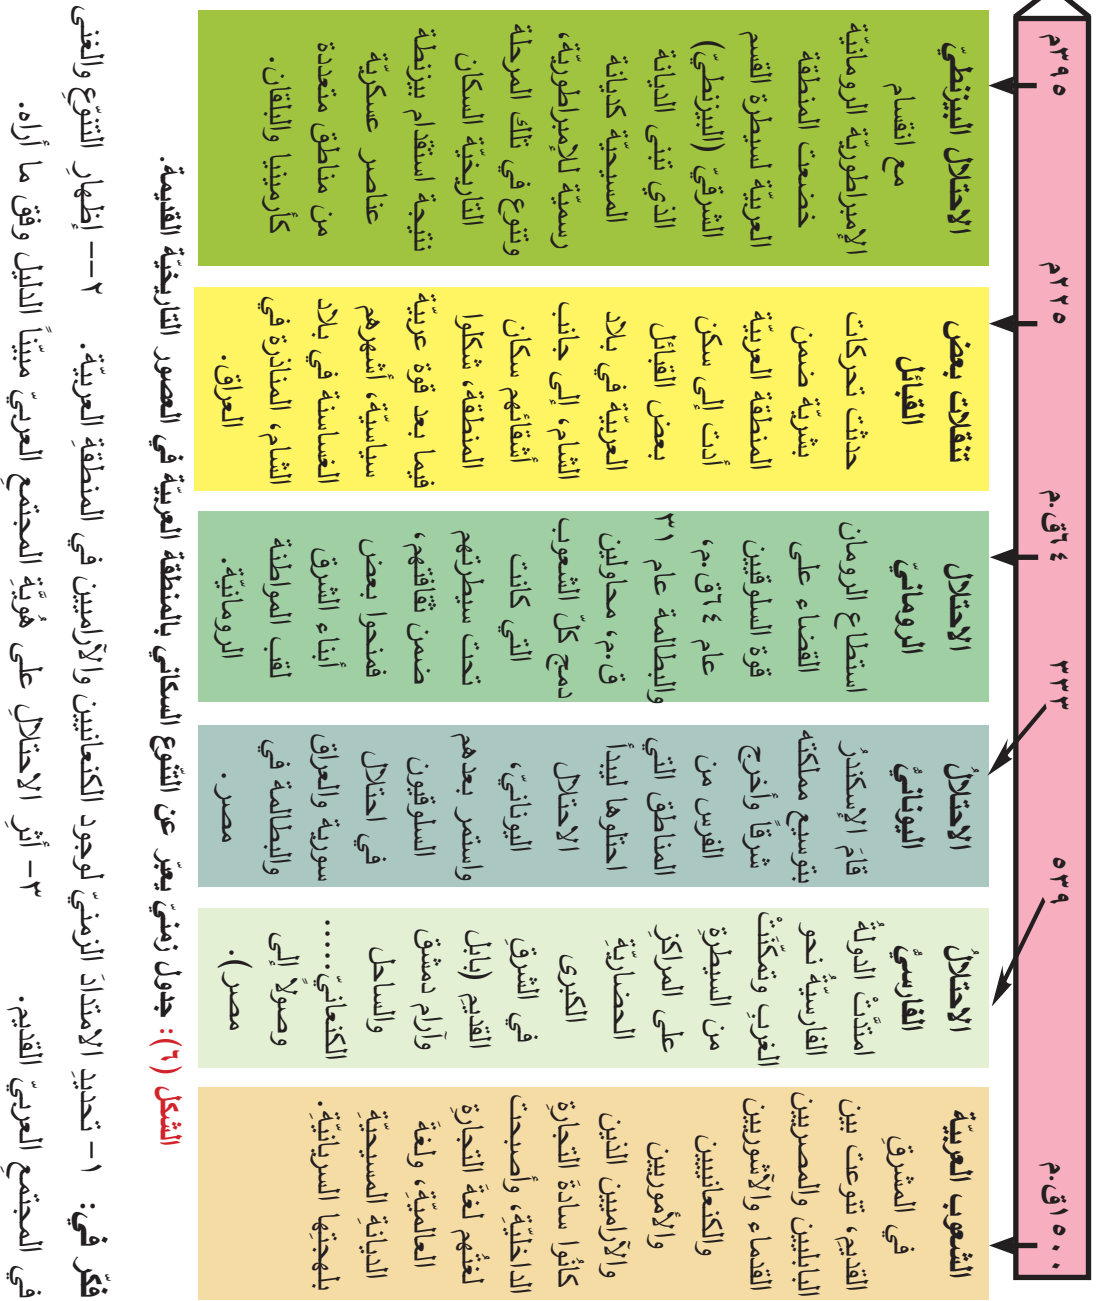 ١٥٠٠ق.م
٥٣٩
٣٣٣
٦٤ق.م
٢٢٥م
٣٩٥م
الشعوب العربيّة
في المشرقِ
القديمِ، تنوعت بين
البابليين والمصريين
القدماء والآشوريين
والكنعانيين
والأموريين
والآراميين الذين
كانُوا سادةَ التجارةِ
الداخليّة، وأصبحت
لغتُهم لغةَ التجارةِ
العالميّةِ، ولغةَ
الديانةِ المسيحيّةِ
بلهجتِها السريانيّةِ.
الاحتلالُ
الفارسيُّ
امتدَّتْ الدولةُ
الفارسيّةُ نحو
الغربِ وتمكّنَتْ
من السيطرةِ
على المراكزِ
الحضاريّةِ
الكبرى
في الشرقِ
القديمِ (بابل
وآرام دمشق
والساحل
الكنعانيّ.....
وصولاً إلى
مصر).
الاحتلالُ
اليونانيُّ
قامَ الإسكندرُ
بتوسيع مملكته
شرقاً وأخرج
الفرس من
المناطق التي
احتلوها ليبدأ
الاحتلال
اليونانيّ،
واستمر بعدهم
السلوقيون
في احتلال
سورية والعراق
والبطالمة في
مصر.
الاحتلال
الرومانيّ
استطاع الرومان
القضاء على
قوة السلوقيين
عام ٦٤ق.م،
والبطالمة عام ٣١
ق.م، محاولين
دمج كلّ الشعوب
التي كانت
تحت سيطرتهم
ضمن ثقافتهم،
فمنحوا بعض
أبناء الشرق
لقب المواطنة
الرومانيّة.
تنقلات بعض
القبائل
حدثت تحركات
بشريّة ضمن
المنطقة العربيّة
أدت إلى سكن
بعض القبائل
العربيّة في بلاد
الشام، إلى جانب
أشقائهم سكان
المنطقة، شكلوا
فيما بعد قوة عربيّة
سياسيّة، أشهرهم
الغساسنة في بلاد
الشام، المناذرة في
العراق.
الاحتلال البيزنطيّ
مع انقسام
الإمبراطوريّة الرومانيّة
خضعت المنطقة
العربيّة لسيطرة القسم
الشرقيّ (البيزنطيّ)
الذي تبنى الديانة
المسيحيّة كديانة
رسميّة للإمبراطوريّة،
وتنوع في تلك المرحلة
التاريخيّة السكان
نتيجة استقدام بيزنطة
عناصر عسكريّة
من مناطق متعددة
كأرمينيا والبلقان.
الشكل (٦): جدول زمنيّ يعبّر عن التّنوع السكاني بالمنطقة العربيّة في العصور التاريخيّة القديمة.
فكّر في: ١- تحديدِ الامتدادَ الزمنيّ لوجود الكنعانيين والآراميين في المنطقةِ العربيّة. ٢-- إظهارِ التنوّعِ والغنى
في المجتمعِ العربيّ القديمِ. ٣- أثرِ الاحتلالِ على هُويَّةِ المجتمعِ العربيّ مبيّناً الدليل وفق ما أراه.